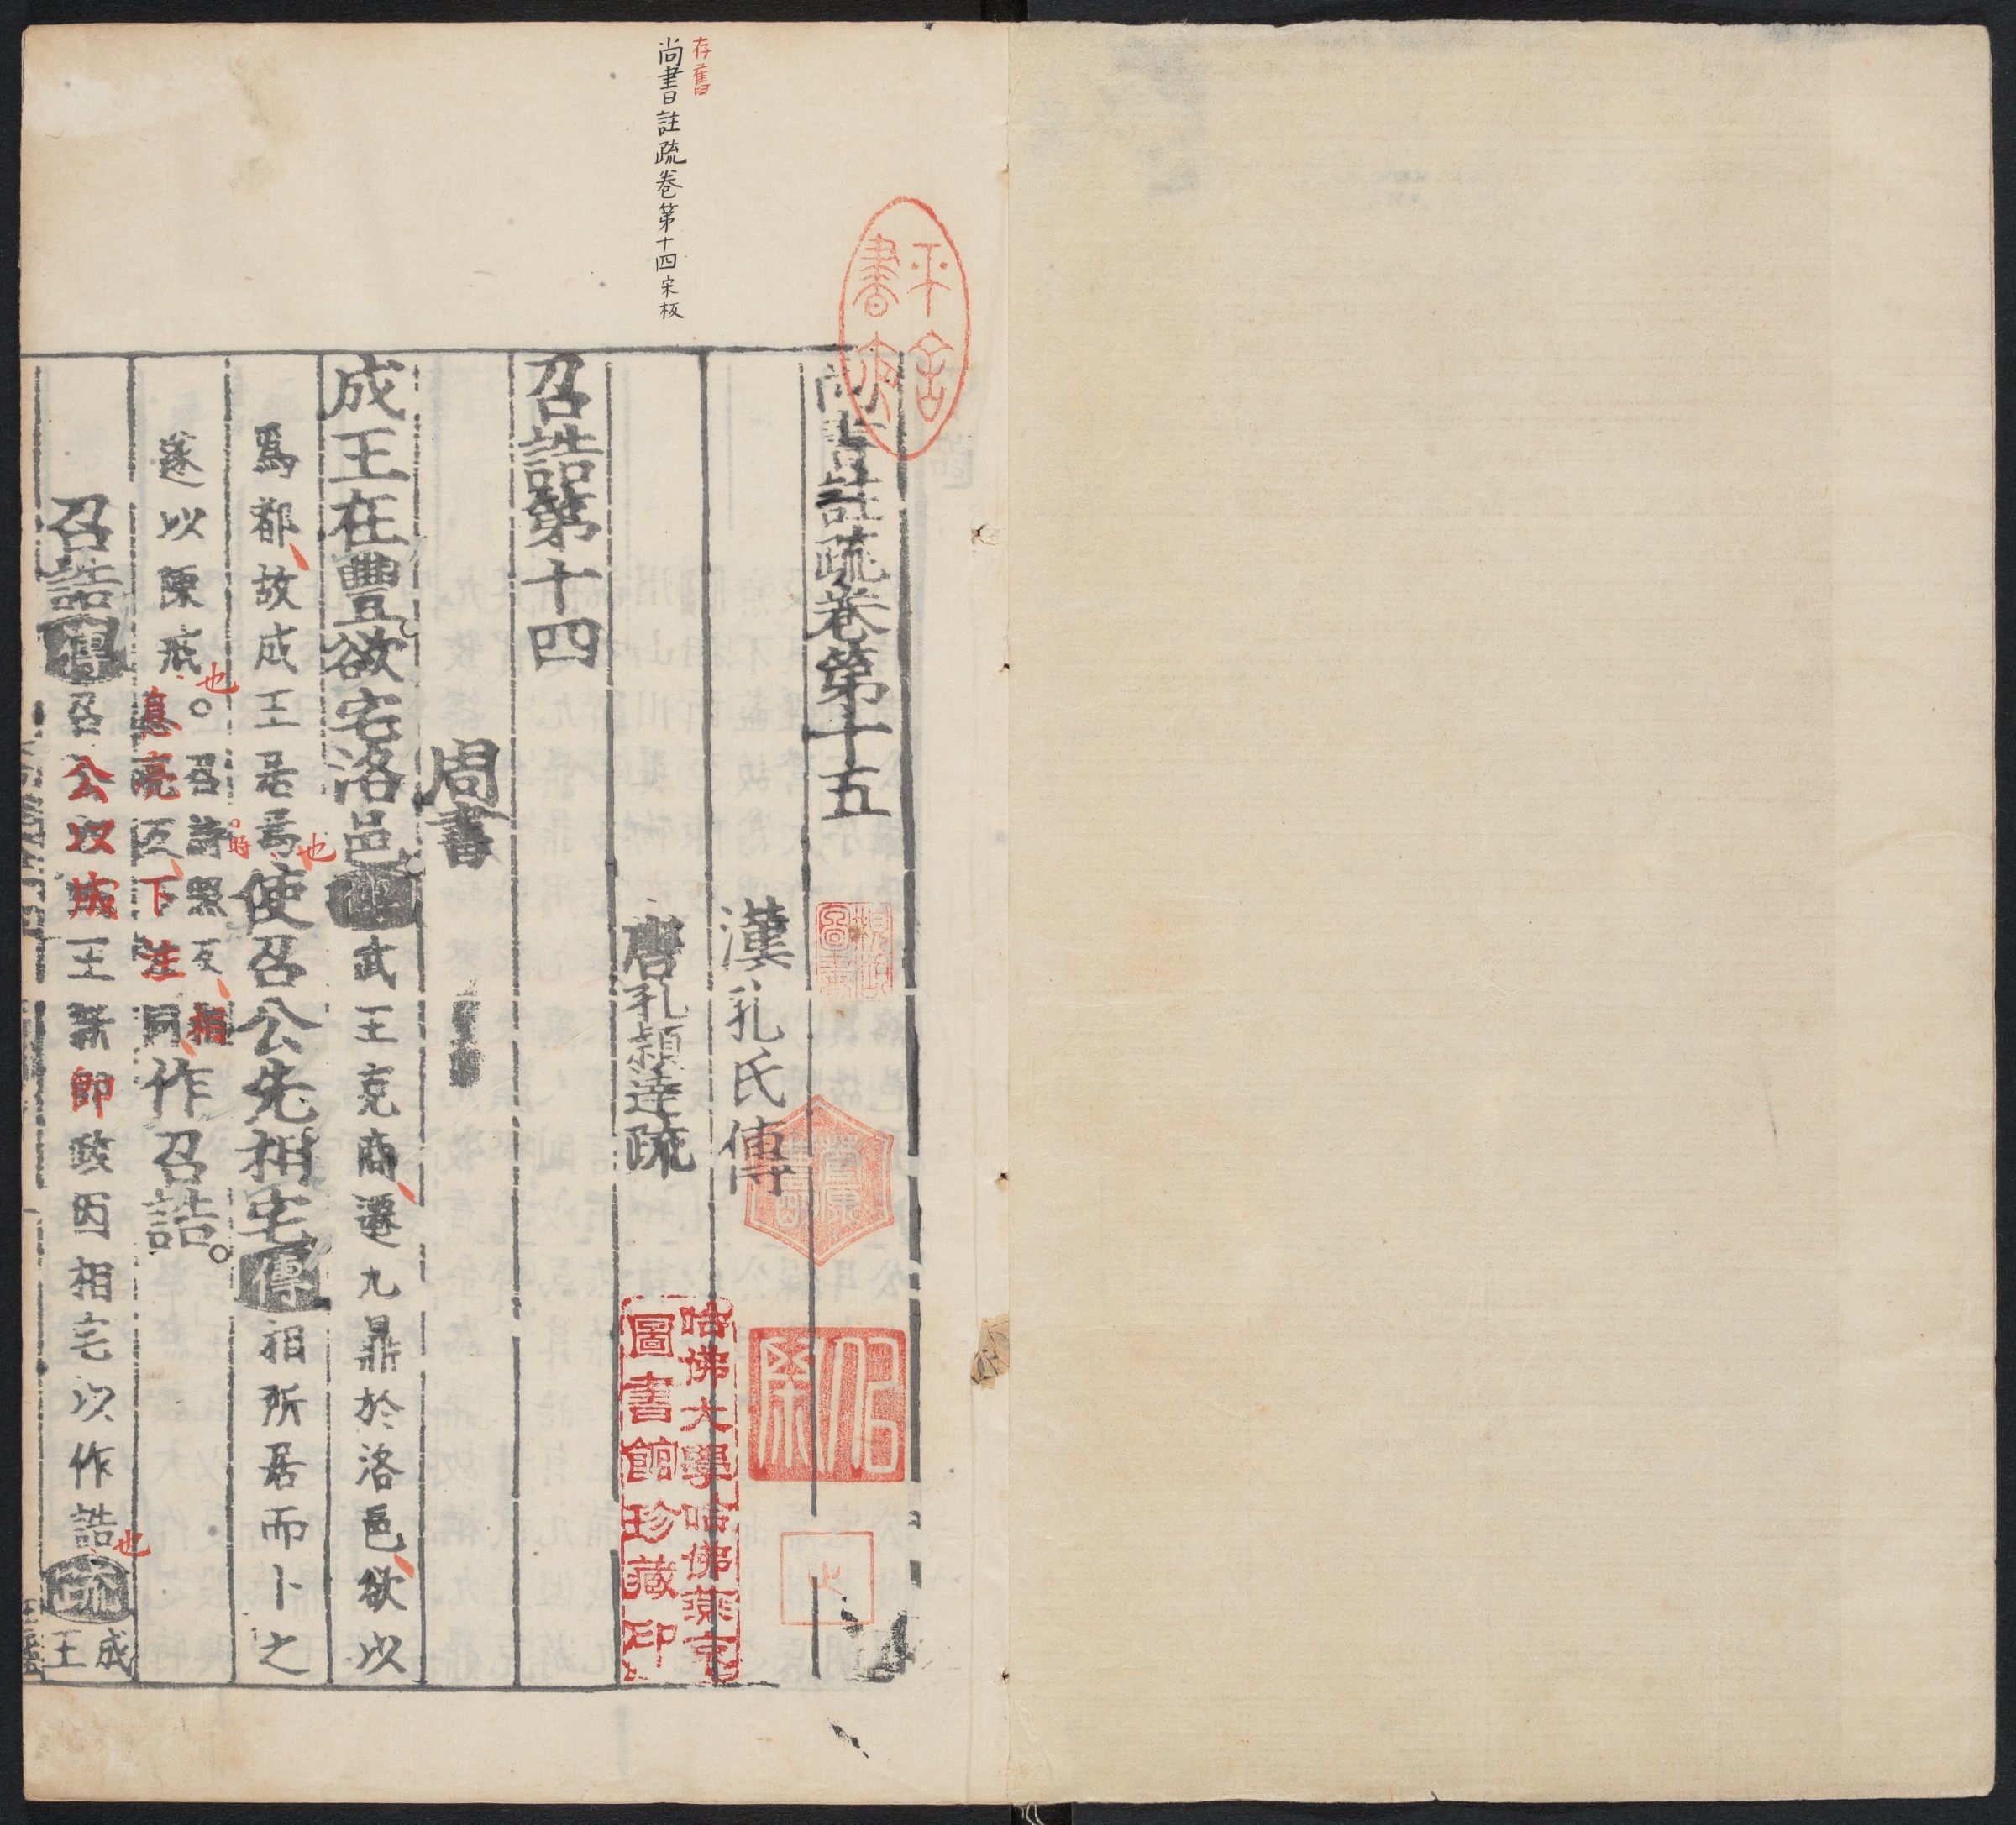 存舊
尚書註疏卷第十四宋板
尚書註疏卷第十五
漢孔氏傳
唐孔穎達疏
召誥第十四
周書
成王在豐欲宅洛邑傳武王克商遷九鼎於洛邑欲以
爲都故成王居焉也使召公先相宅傳相所居而卜之
遂以陳戒也○召詩照反相
息亮反下注同作召誥○
召誥傳召公以成王新即政因相宅以作誥也疏成
王
哈佛大學哈佛燕京
圖書館珍藏印